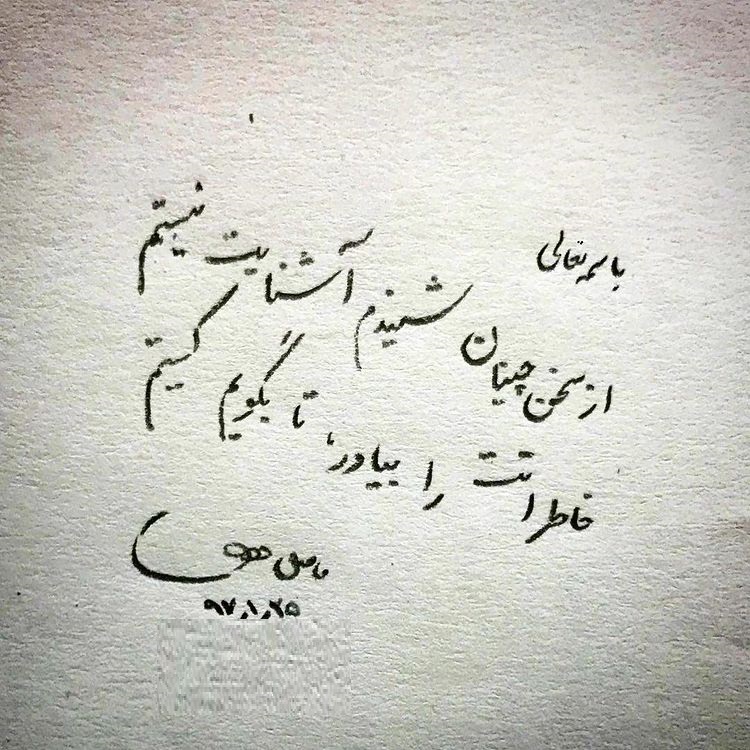 باسمه تعالی
از سخن چینان شنیدم آشنایت نیستم
خاطراتت را بیاور، تا بگویم کیستم
فاضل
۹۷٫۱٫۲۵